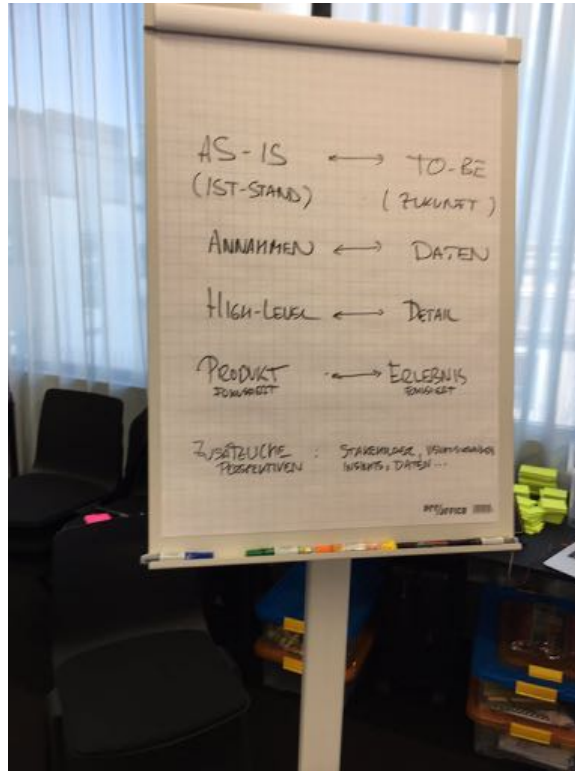 AS-IS ↔ TO-BE
(IST-STAND) (ZUKUNFT)
ANNAHMEN ↔ DATEN
HIGH-LEVEL ↔ DETAIL
PRODUKT ↔ ERLEBNIS
FOKUSSIERT FOKUSSIERT
ZUSÄTZLICHE : STAKEHOLDER,
PERSPEKTIVEN INSIGHTS, DATEN...